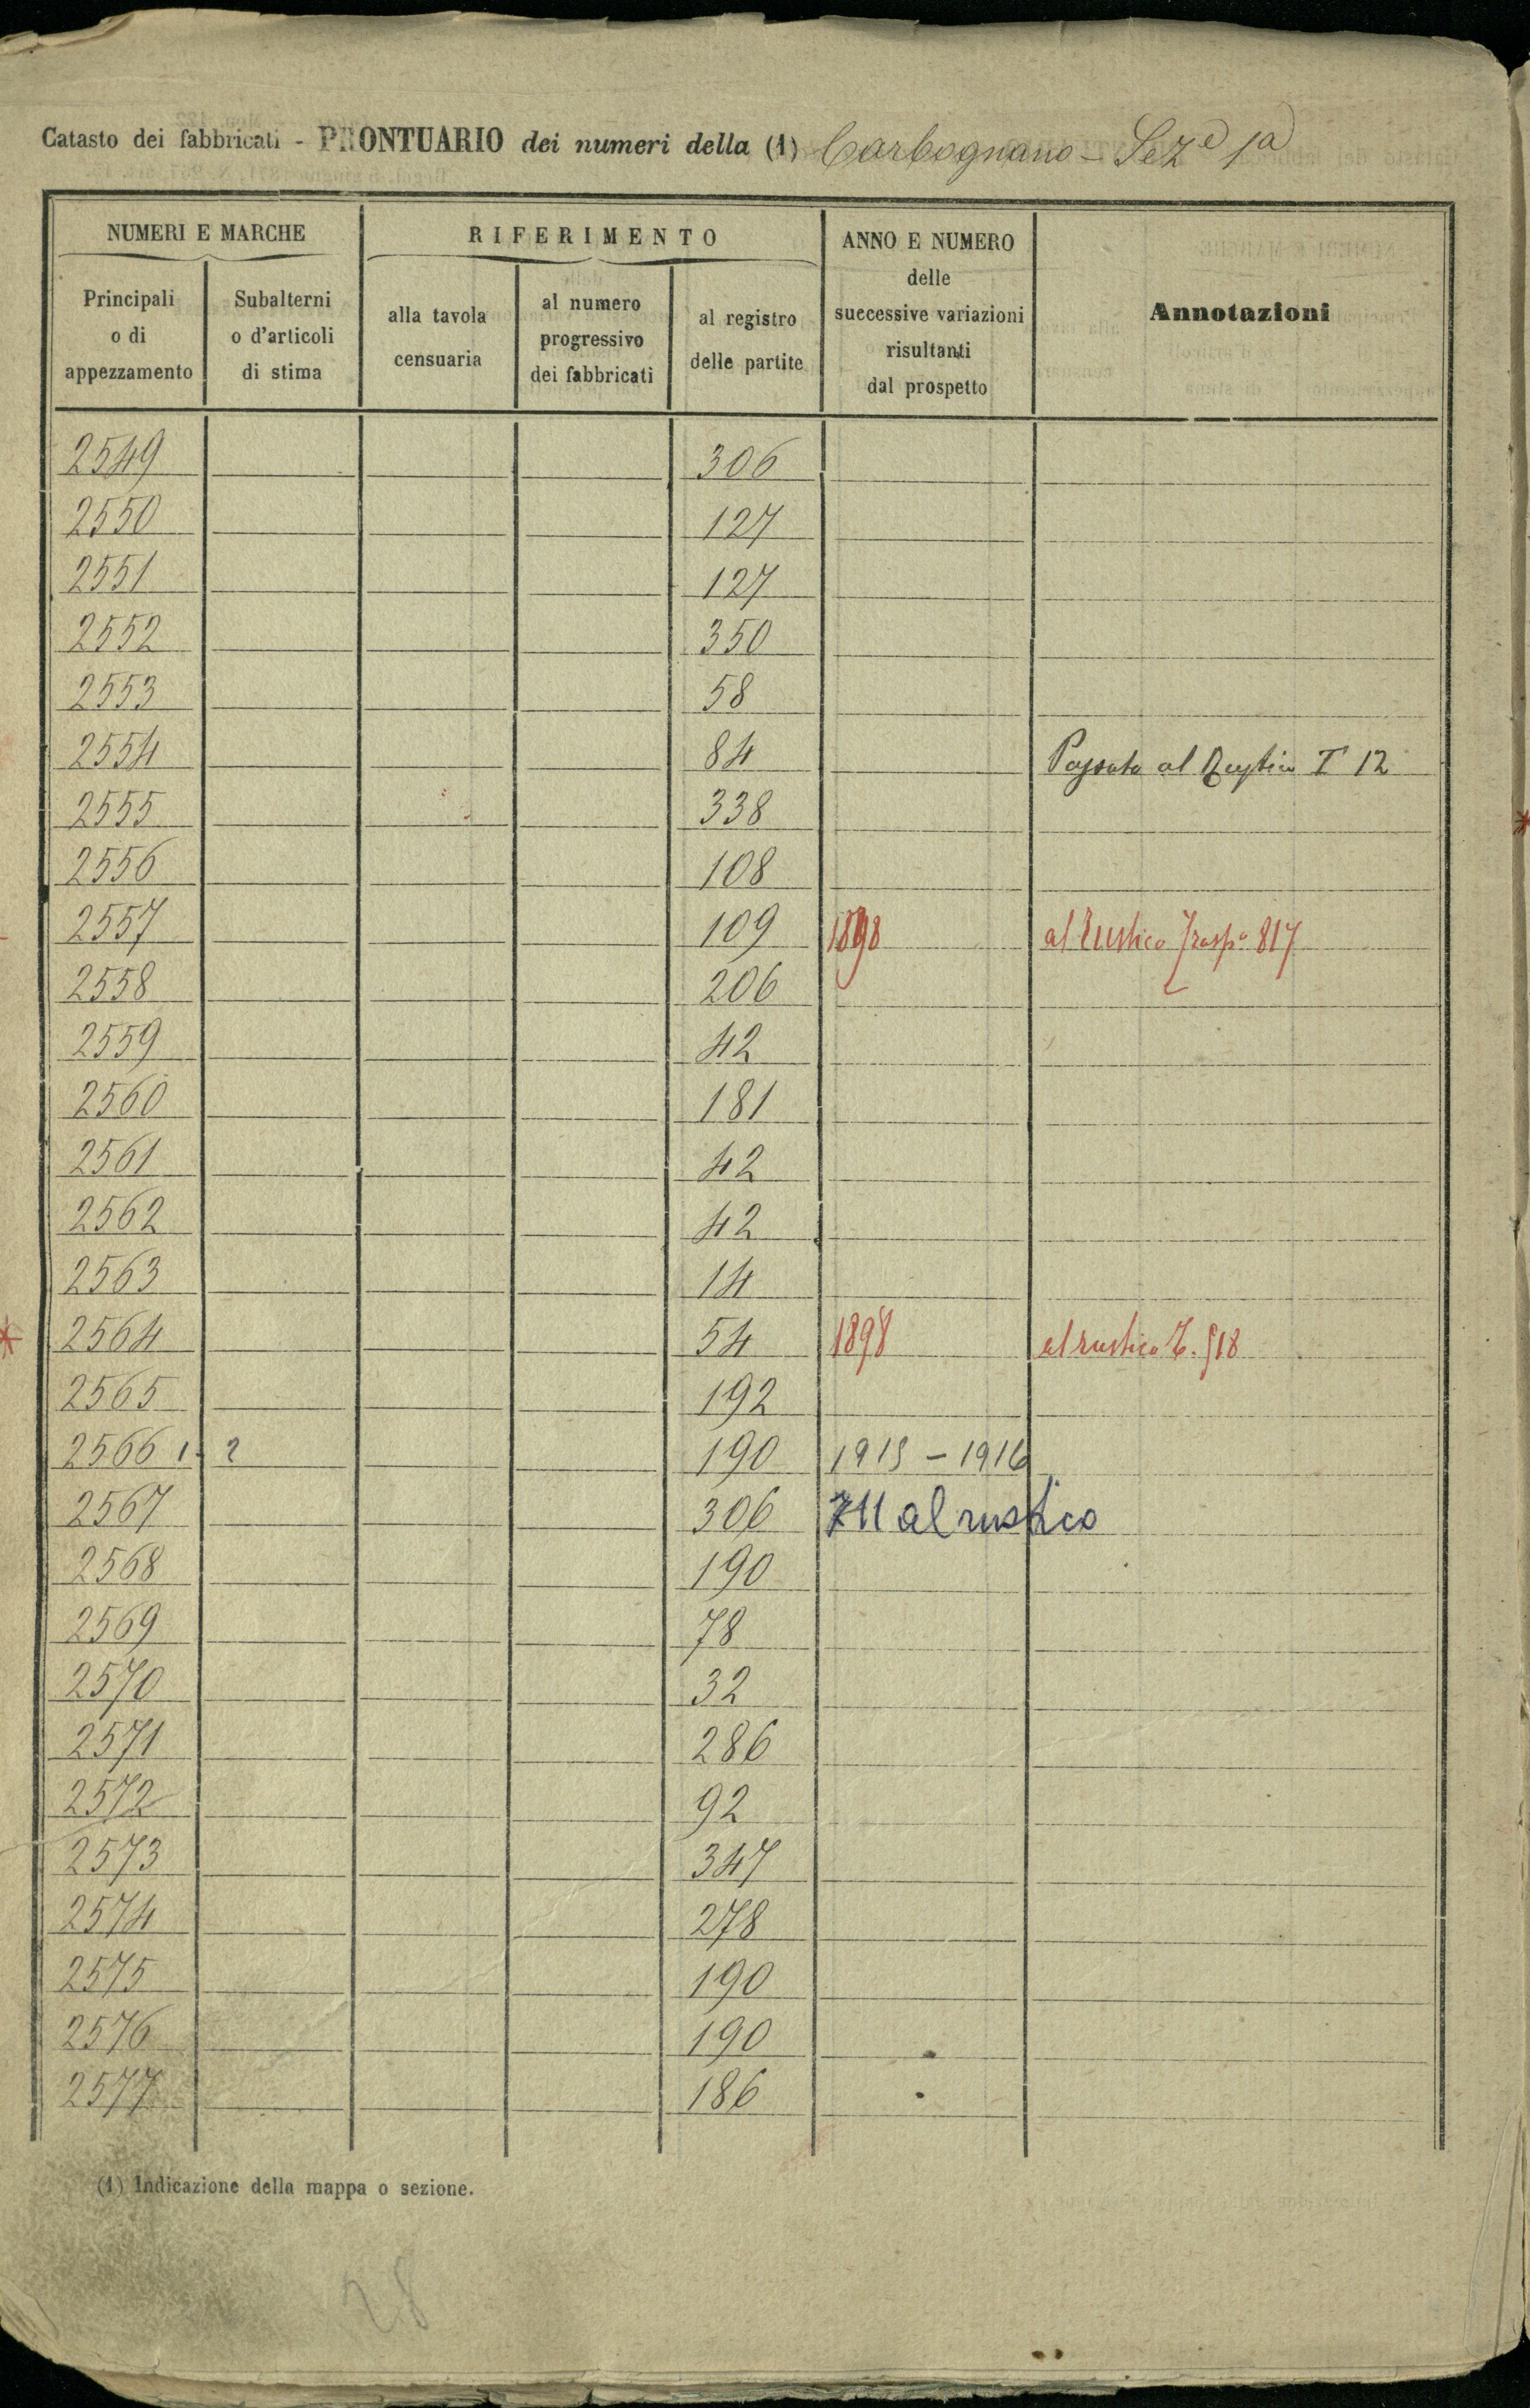 Catasto dei fabbricati - PRONTUARIO dei numeri della (1) Carbognano - Seze 1a
NUMERI E MARCHE
RIFERIMENTO
ANNO E NUMERO delle successive variazioni risultanti dal prospetto
Annotazioni
Principali o di appezzamento
Subalterni o d'articoli di stima
alla tavola censuaria
al numero progressivo dei fabbricati
al registro delle partite
2549 306
2550 127
2551 127
2552 350
2553 58
2554 84 Passato al Rustico T 12
2555 338
2556 108
2557 109 1898 al Rustico Traspo 817
2558 206
2559 42
2560 181
2561 42
2562 42
2563 14
2564 54 1898 al rustico T. 818
2565 192
2566 1 2 190 1915 - 1916
2567 306 al rustico
2568 190
2569 78
2570 32
2571 286
2572 92
2573 347
2574 278
2575 190
2576 190
2577 186
(1) Indicazione della mappa o sezione.
28